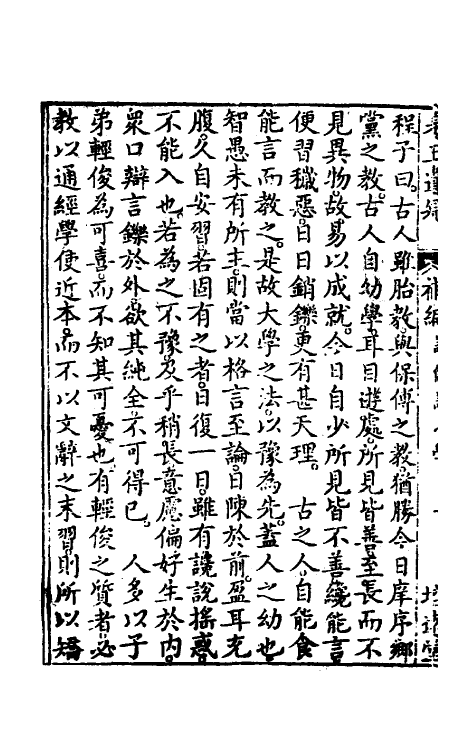 程子曰古人雖胎教與保傅之教猶勝今日庠序鄉
黨之教古人自幼學耳目遊處所見皆善至長而不
見異物故易以成就今日自少所見皆不善纔能言
便習穢惡日日銷鑠更有甚天理。 古之人自能食
能言而教之是故大學之法以豫為先蓋人之幼也
智愚未有所主則當以格言至論日陳於前盈耳充
腹久自安習若固有之者日復一日雖有讒說搖惑
不能入也若為之不豫及乎稍長意慮偏好生於內
眾口辯言鑠於外欲其純全不可得已。 人多以子
弟輕俊為可喜而不知其可憂也有輕俊之質者必
教以通經學使近本而不以文辭之末習則所以矯